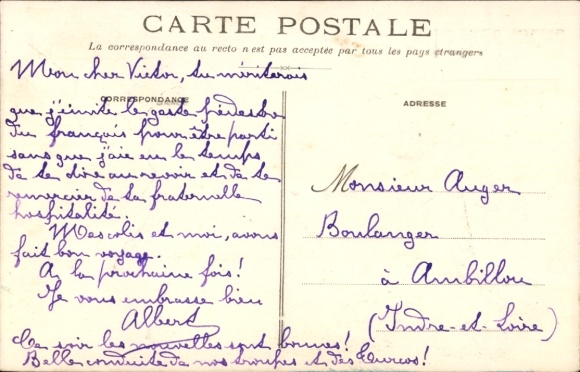 CARTE POSTALE
La correspondance au recto n'est pas acceptée par tous les pays étrangers
Mon cher Victor, tu mériterais
CORRESPONDANCE
que j'imite le geste pédestre
du français pour être parti
sans que j'aie eu le temps
de te dire au revoir et de te
remercier de ta fraternelle
hospitalité.
Mes colis et moi, avons
fait bon voyage.
A la prochaine fois!
Je vous embrasse bien
Albert
Ce soir les nouvelles sont bonnes!
Belle conduite de nos troupes et des Turcos!
ADRESSE
Monsieur Auger
Boulanger
à Ambillou
(Indre-et-Loire)